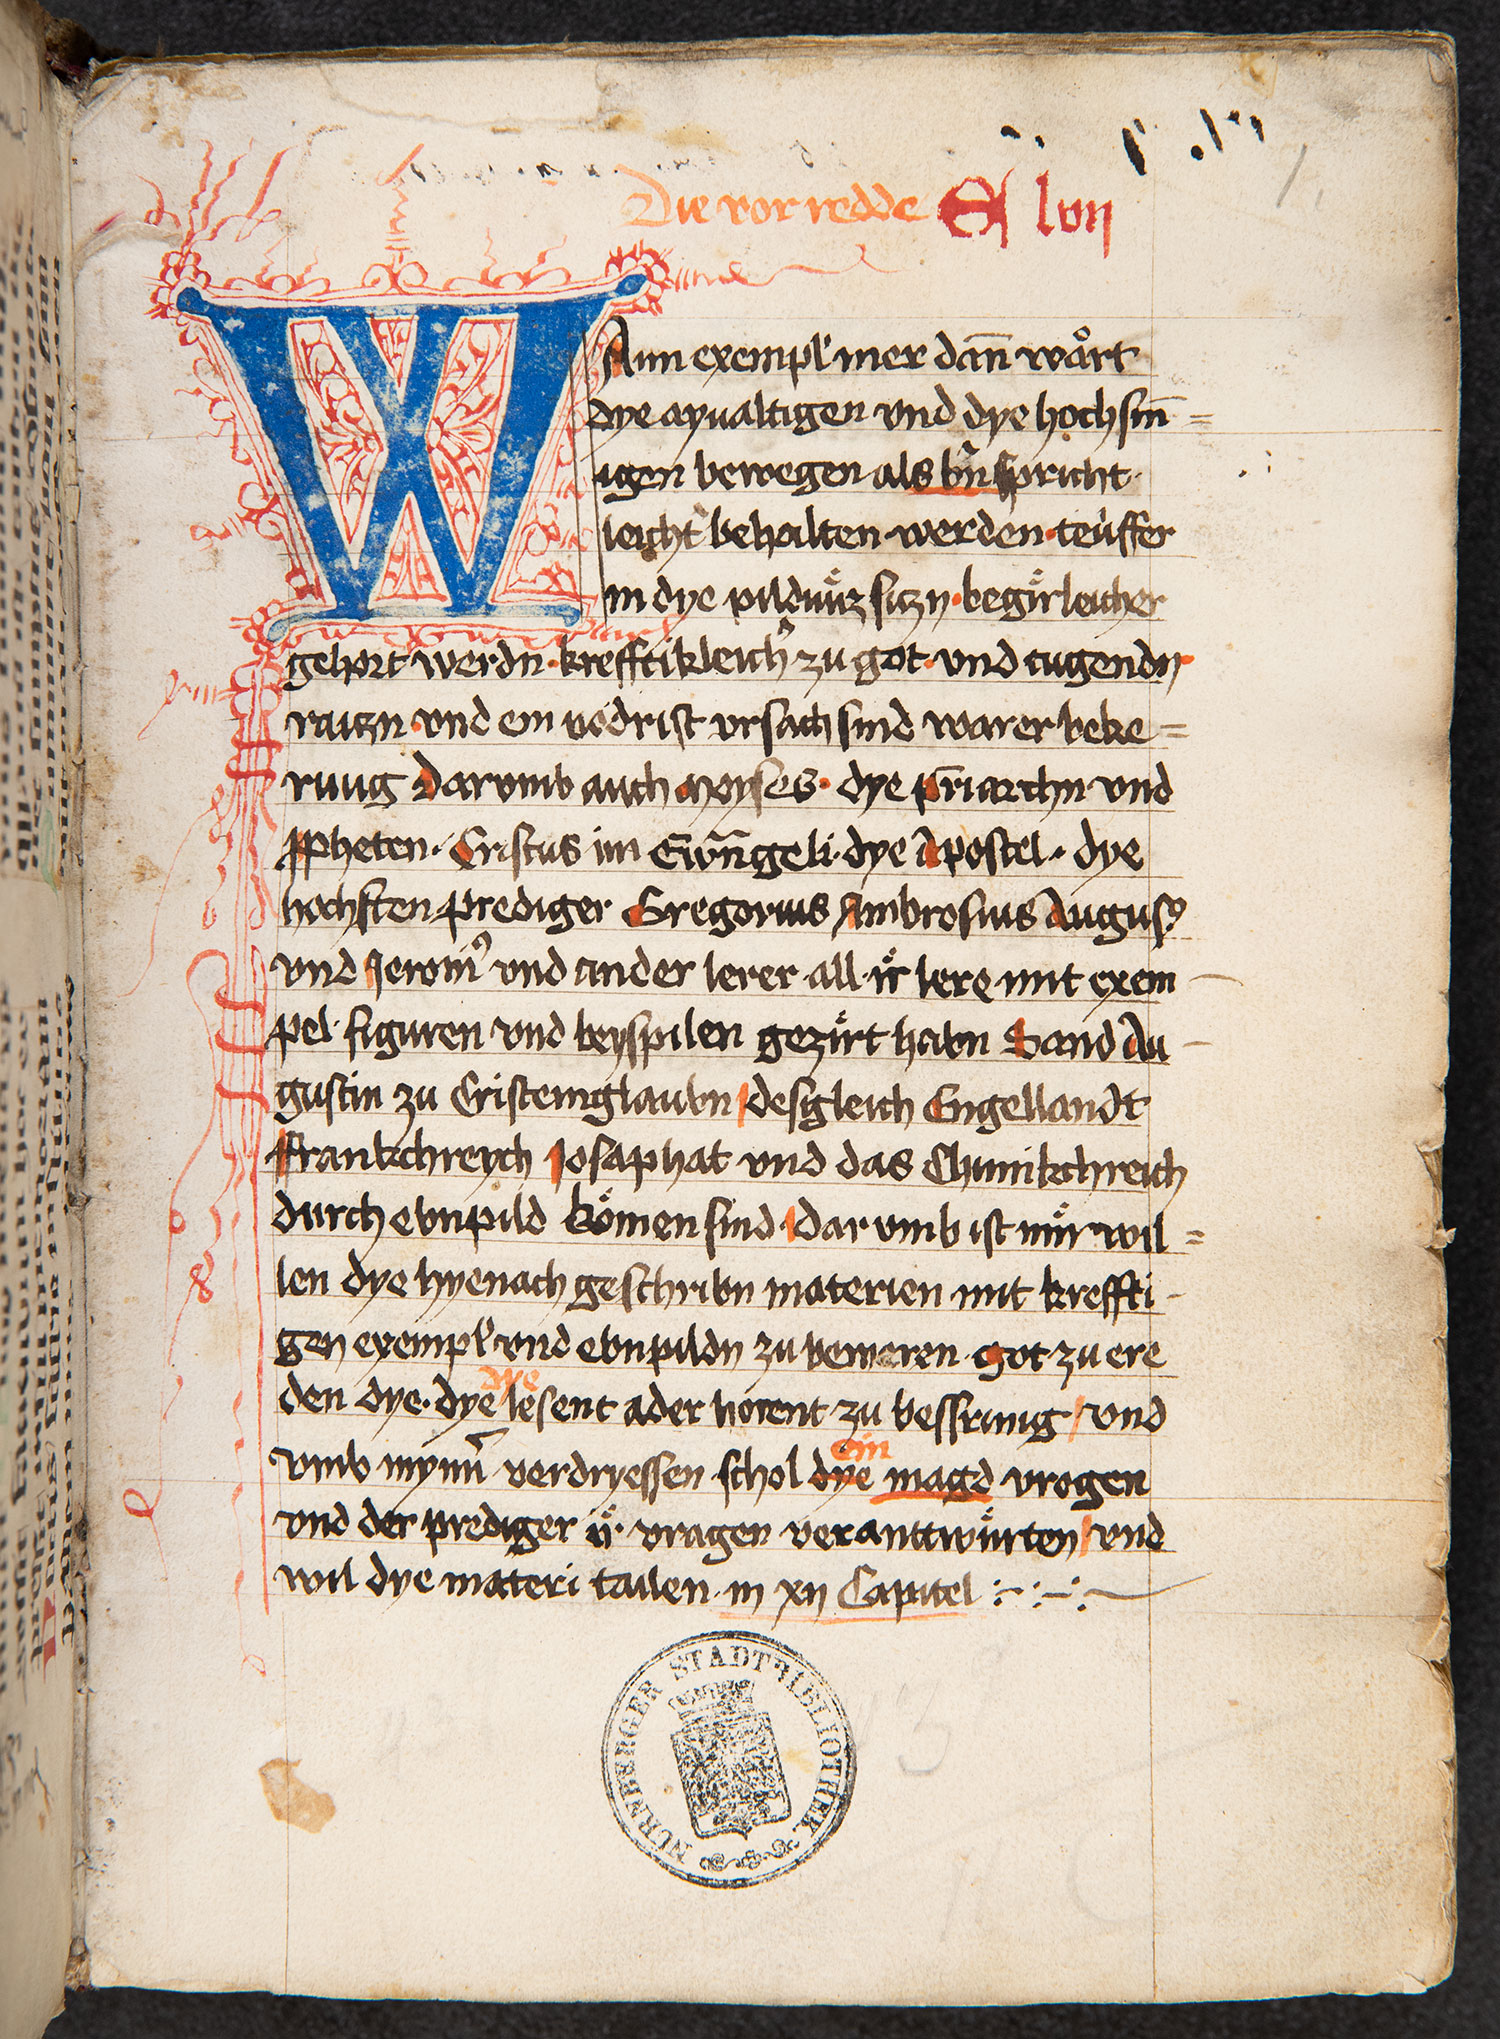 Die vor redde E lvij
WAnn exempl mer dañ wȧrt
dye aynaltigen vnd dye hochsiñ=
igen bewegen als bñ spricht·
leicht behalten·werden·teuffer
in dye pildnüz siczn·begirleicher
gehort werdn·krefftikleich zu got·vnd tugendn
raiczn·vnd ein vodrist vrsach sind warer beke=
rung Darvmb auch Moyses·dye priarchn vnd
Ppheten·Cristus im Ewangeli·dye Apostel·dye
hochsten prediger Gregorius Ambrosius Augus
vnd Jeronim vnd ander lerer·all·ir lere mit exem
pel·figuren vnd beyspilen geziert habn Sand Au
gustin zu Cristemglaubn desgleich Engellandt
Frankchreych Josaphat vnd das Chunikchreich
durch ebnpild kömen sind·darvmb ist mir wil=
len dye hyenach geschribn materien mit kreffti
gen exempl vnd ebnpildn zu beweren·got·zu ere
den dye·dye lesent ader horent zu bessrung vnd
dye
vmb mynn verdryessen schol dye magd vrogen
ein
vnd der prediger ir·vragen verantwürten vnd
wil dye materi tailen·in xij Capitel
NÜRNBERGER STADTBIBLIOTHEK